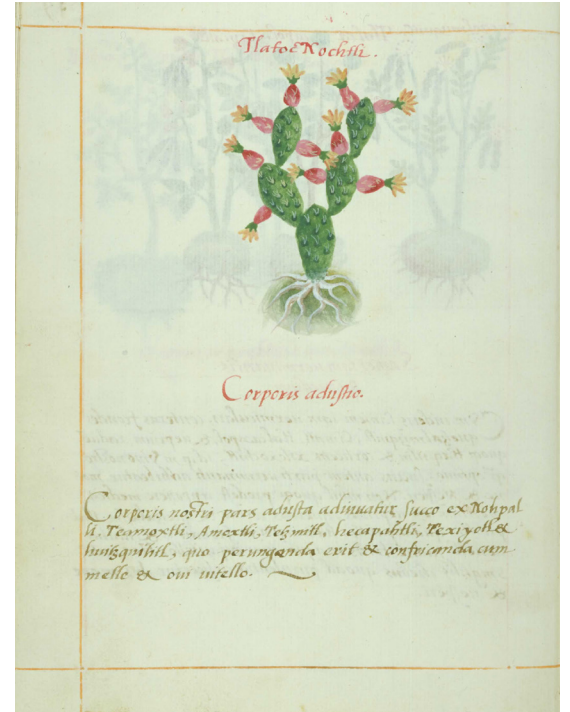 Tlatoc Nochtli.
Corporis adustio.
Corporis nostri pars adusta adiuvatur succo ex Nohpal
li, Teamoxtli, Amoxtli, Tetzmitl, hecapahtli, Texiyotl &
huitzquilitl, quo perungenda erit & confricanda cum
melle & ovi vitello.